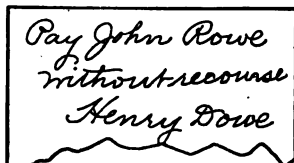 Pay John Rowe
without recourse
Henry Dowe